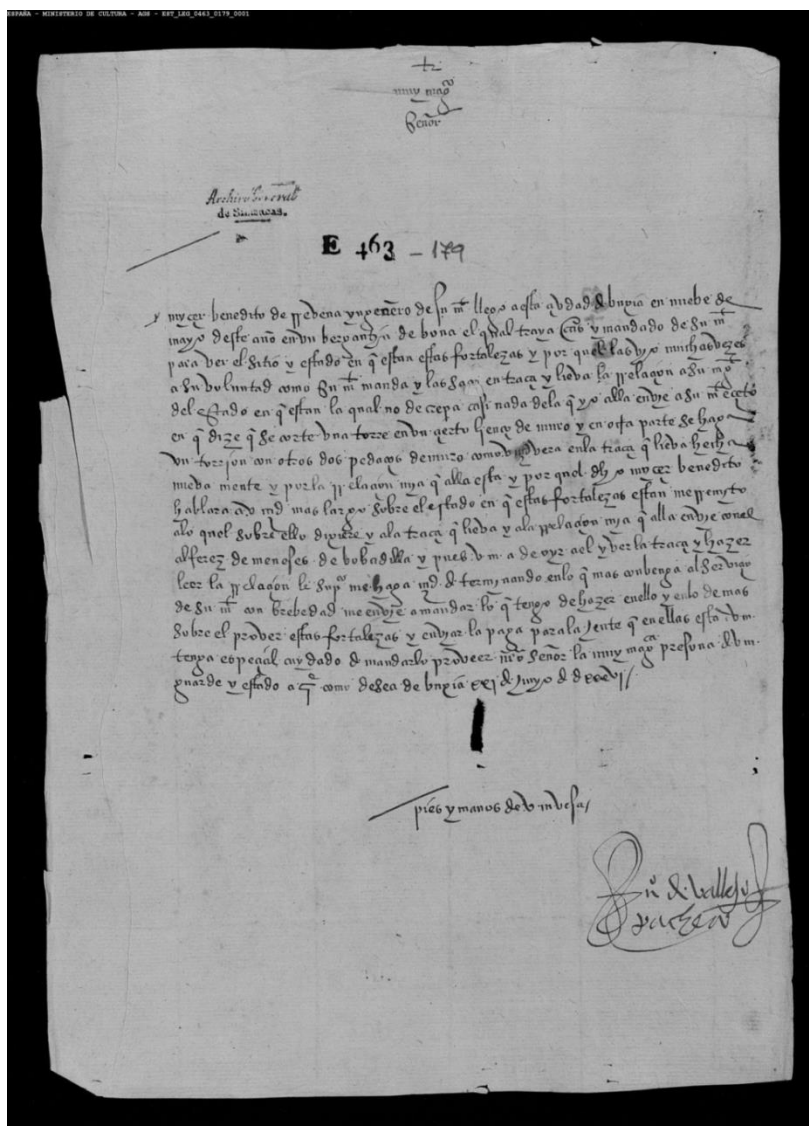 ESPAÑA - MINISTERIO DE CULTURA - AGS - EST_LEG_0463_0179_0001
+
muy mag^co
Señor
Archivo General
de Simancas.
E 463 - 179
y mycer benedito de rrebena ynxenero de su m^t llego a esta çivdad de buxia en nuebe de
mayo deste año en vn berganthin de bona el qual traya y mandado de su m^t
para ver el sitio y estado en q estan estas fortalezas y por quel las vyo muchas vezes
a su voluntad como su m^t manda y las saca en traça y lieva la rrelaçion a su m^t
del estado en q estan la qual no decrepa casi nada dela q yo alla envie a su m^t eçeto
en q dize q se corte vna torre en vn çierto lienço de muro y en otra parte se haga
vn torrion con otros dos pedaços de muro como v m vera en la traça q lieva hecha
nueva mente y por la rrelaçion mya q alla esta y por quel dho myçer benedito
hablara a v md mas largo sobre el estado en q estas fortalezas estan me rremyto
alo quel sobre ello dixere y ala traça q lieva y ala rrelaçion mya q alla envie conel
alferez de meneses de bobadilla y pues v.m. a de oyr a el y ver la traça y hazer
leer la rrelaçion le sup^co me haga md. determinando enlo q mas convenga al serviçio
de su m^t con brebedad me enbye a mandar lo q tengo de hazer enello y enlo demas
sobre el prover estas fortalezas y enbyar la paga para la jente q en ellas esta v.m.
tenga espeçial cuydado de mandarlo proveer nro señor la muy mag^ca presona de v.m.
guarde y estado a como desea de buxia xxi de de dxxxvi
pies y manos de v m vesa
de vallejo
pacheco